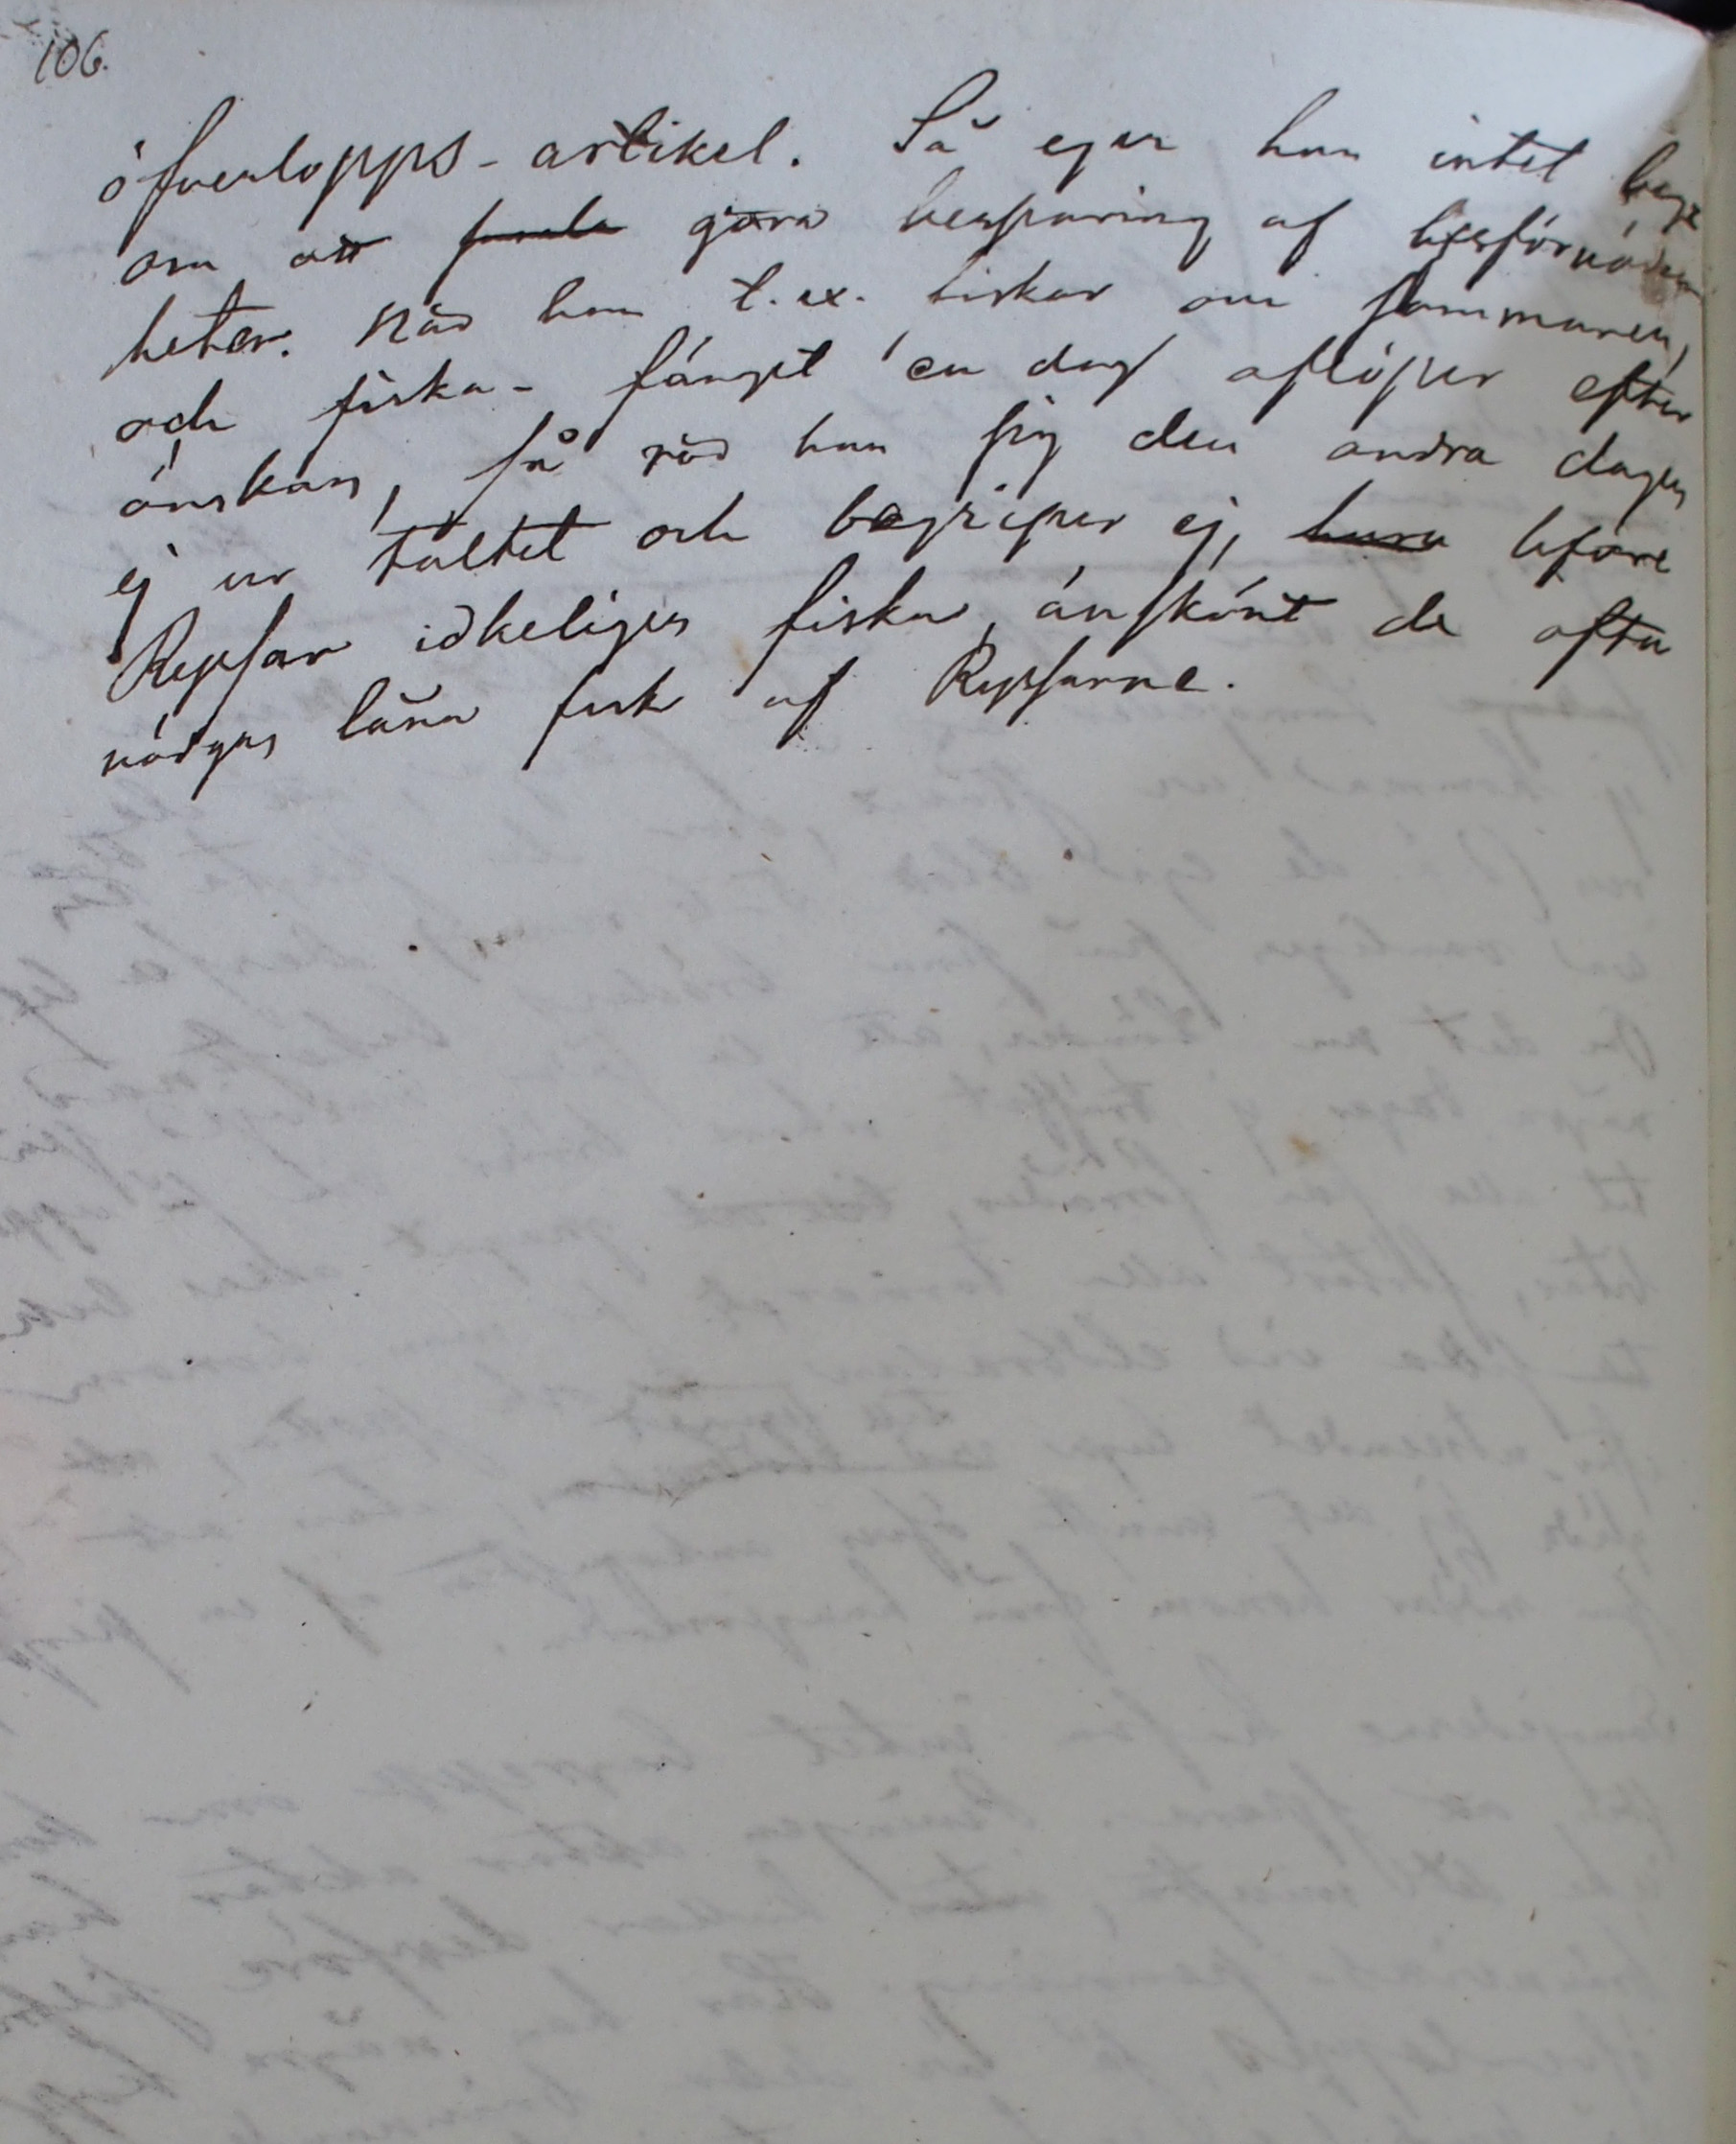 106.
öfverlopps-artikel. Så eger han intet begr
om att samla göra besparing af lifsförnöden
heter. När han t.ex. fiskar om sommaren,
och fiska-fänget en dag aflöper efter
önskan, så rör han sig den andra dagen
ej ur tältet och begriper ej, huru
Ryssar idkeligen fiska, änskönt de ofta
nödgas låna fisk af Ryssarne.